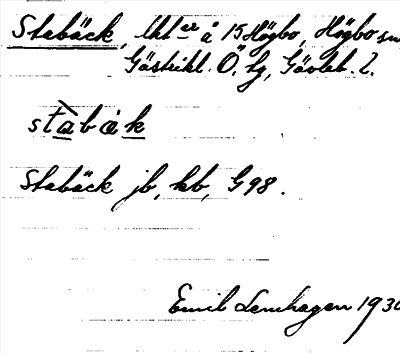 Stabäck, lht er å 15 Högbo, Högbo sn
Gästrikl. Ö. tg, Gävleb. l.
stàbàk
Stabäck jb, kb, G98.
Emil Lenhagen 1930